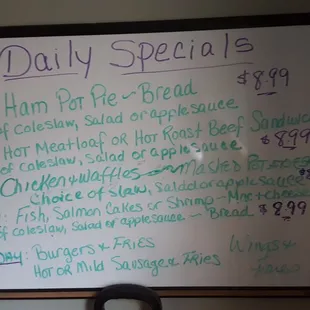 Daily Specials
$8.99
Ham Pot Pie - Bread
of coleslaw, salad or applesauce
Hot Meatloaf or Hot Roast Beef Sandwich
of coleslaw, salad or applesauce $8.99
Chicken & Waffles Mashed Potatoes
Choice of slaw, salad or applesauce
: Fish, Salmon Cakes or Shrimp - Mac & Cheese
of coleslaw, salad or applesauce - Bread $8.99
day: Burgers & Fries Wings &
Hot or Mild Sausage & Fries